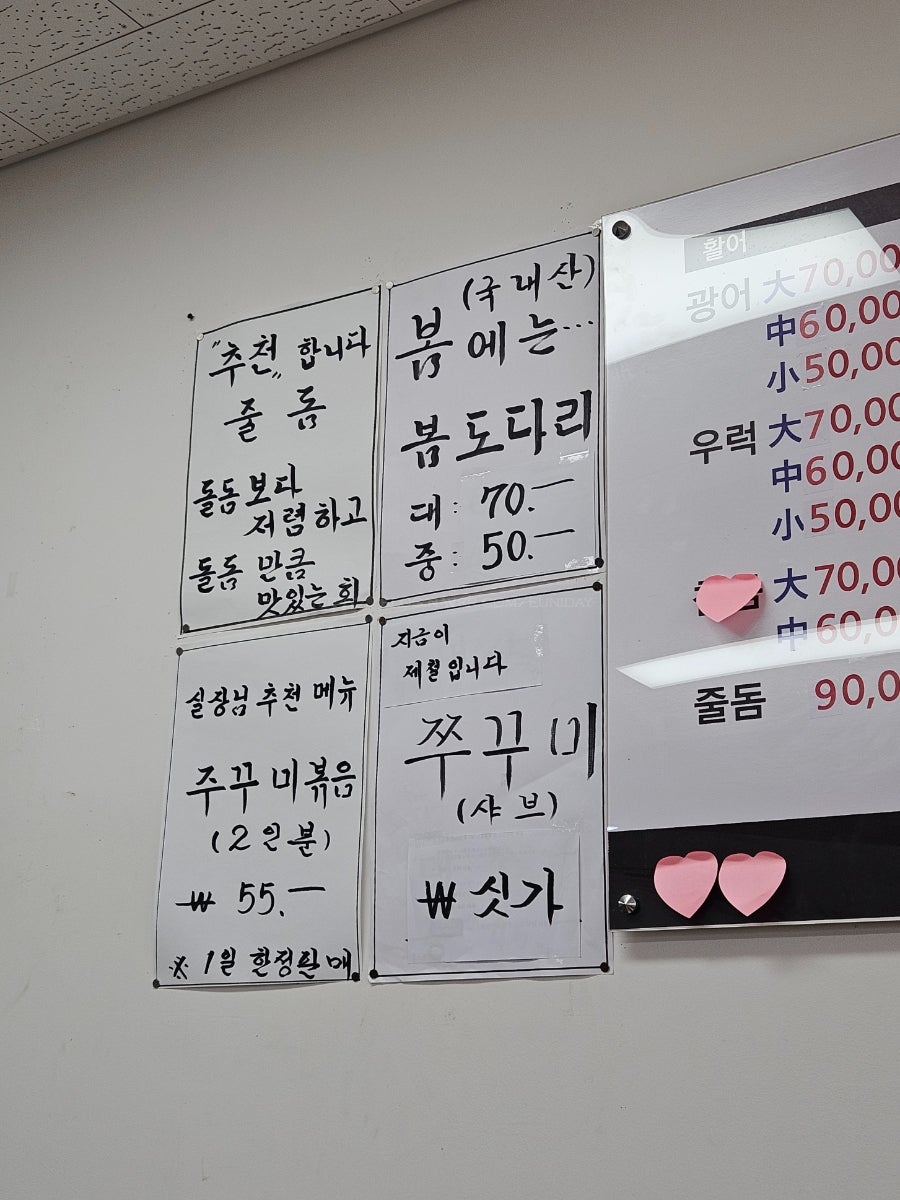 "추천" 합니다
줄 돔
돌돔 보다
저렴하고
돌돔 만큼
맛있는 회
(국내산)
봄에는...
봄 도다리
대: 70.-
중: 50.-
실장님 추천 메뉴
주꾸미볶음
(2인분)
₩ 55.-
※ 1일 한정판매
지금이
제철입니다
쭈꾸미
(샤브)
₩ 싯가
활어
광어 大 70,00
中 60,00
小 50,00
우럭 大 70,00
中 60,00
小 50,00
大 70,00
中 60,00
줄돔 90,0